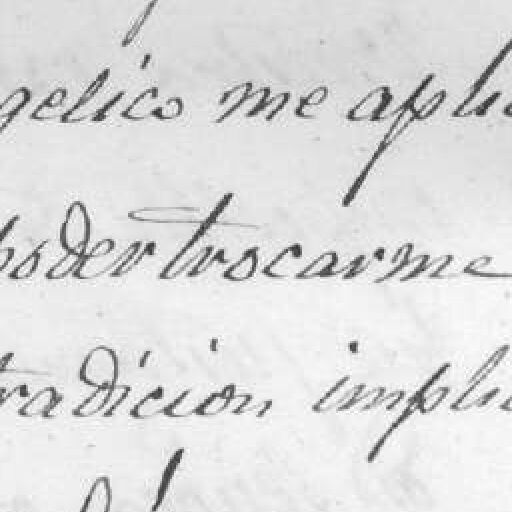 gelico me aplic
poder trocarme
tradicion implic